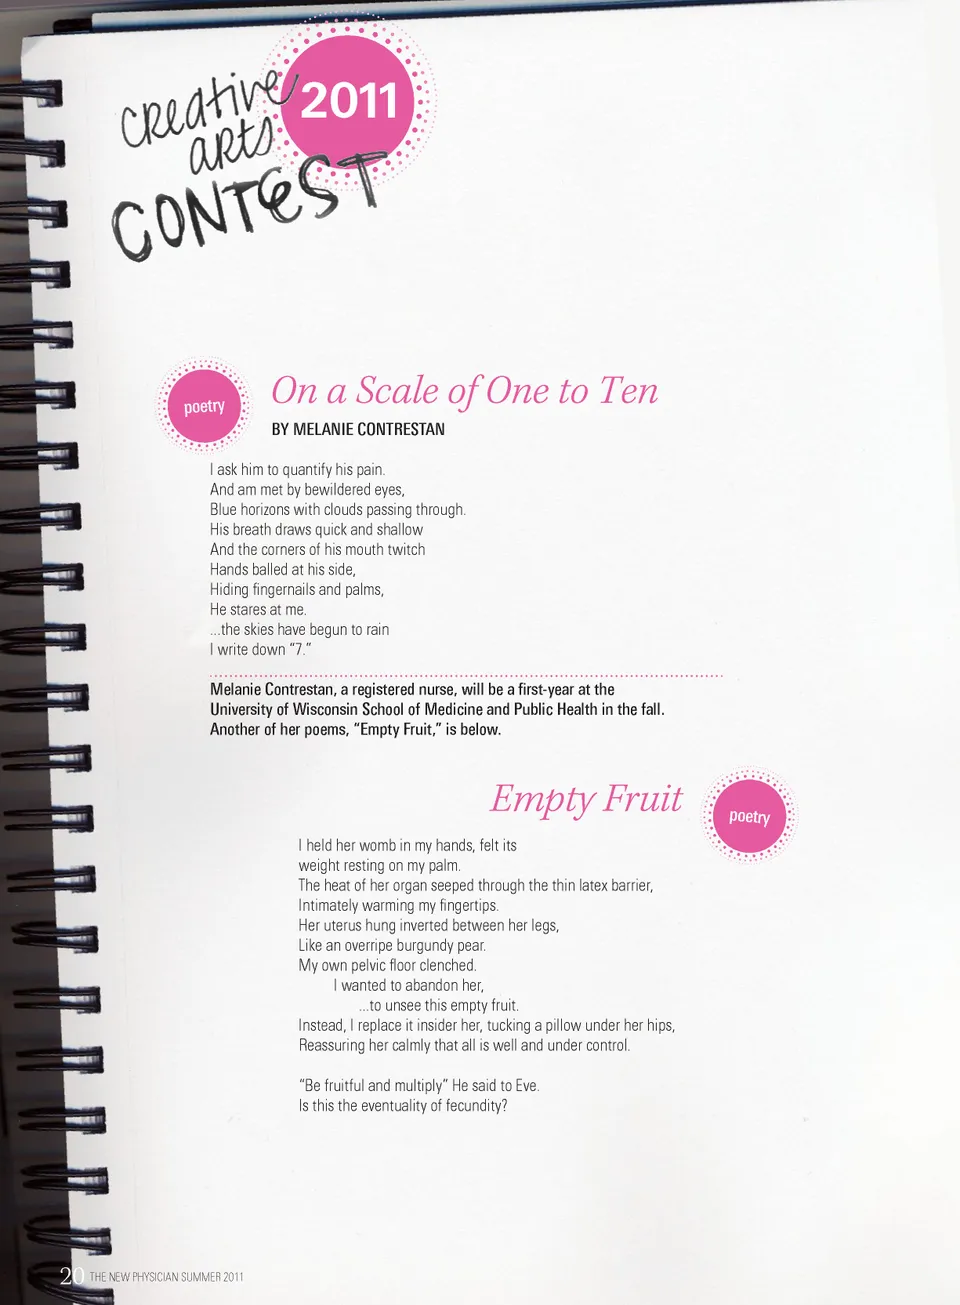 creative
arts
CONTEST
2011
poetry
On a Scale of One to Ten
BY MELANIE CONTRESTAN
I ask him to quantify his pain.
And am met by bewildered eyes,
Blue horizons with clouds passing through.
His breath draws quick and shallow
And the corners of his mouth twitch
Hands balled at his side,
Hiding fingernails and palms,
He stares at me.
...the skies have begun to rain
I write down “7.”
Melanie Contrestan, a registered nurse, will be a first-year at the
University of Wisconsin School of Medicine and Public Health in the fall.
Another of her poems, “Empty Fruit,” is below.
Empty Fruit
poetry
I held her womb in my hands, felt its
weight resting on my palm.
The heat of her organ seeped through the thin latex barrier,
Intimately warming my fingertips.
Her uterus hung inverted between her legs,
Like an overripe burgundy pear.
My own pelvic floor clenched.
I wanted to abandon her,
...to unsee this empty fruit.
Instead, I replace it insider her, tucking a pillow under her hips,
Reassuring her calmly that all is well and under control.
“Be fruitful and multiply” He said to Eve.
Is this the eventuality of fecundity?
20 THE NEW PHYSICIAN SUMMER 2011